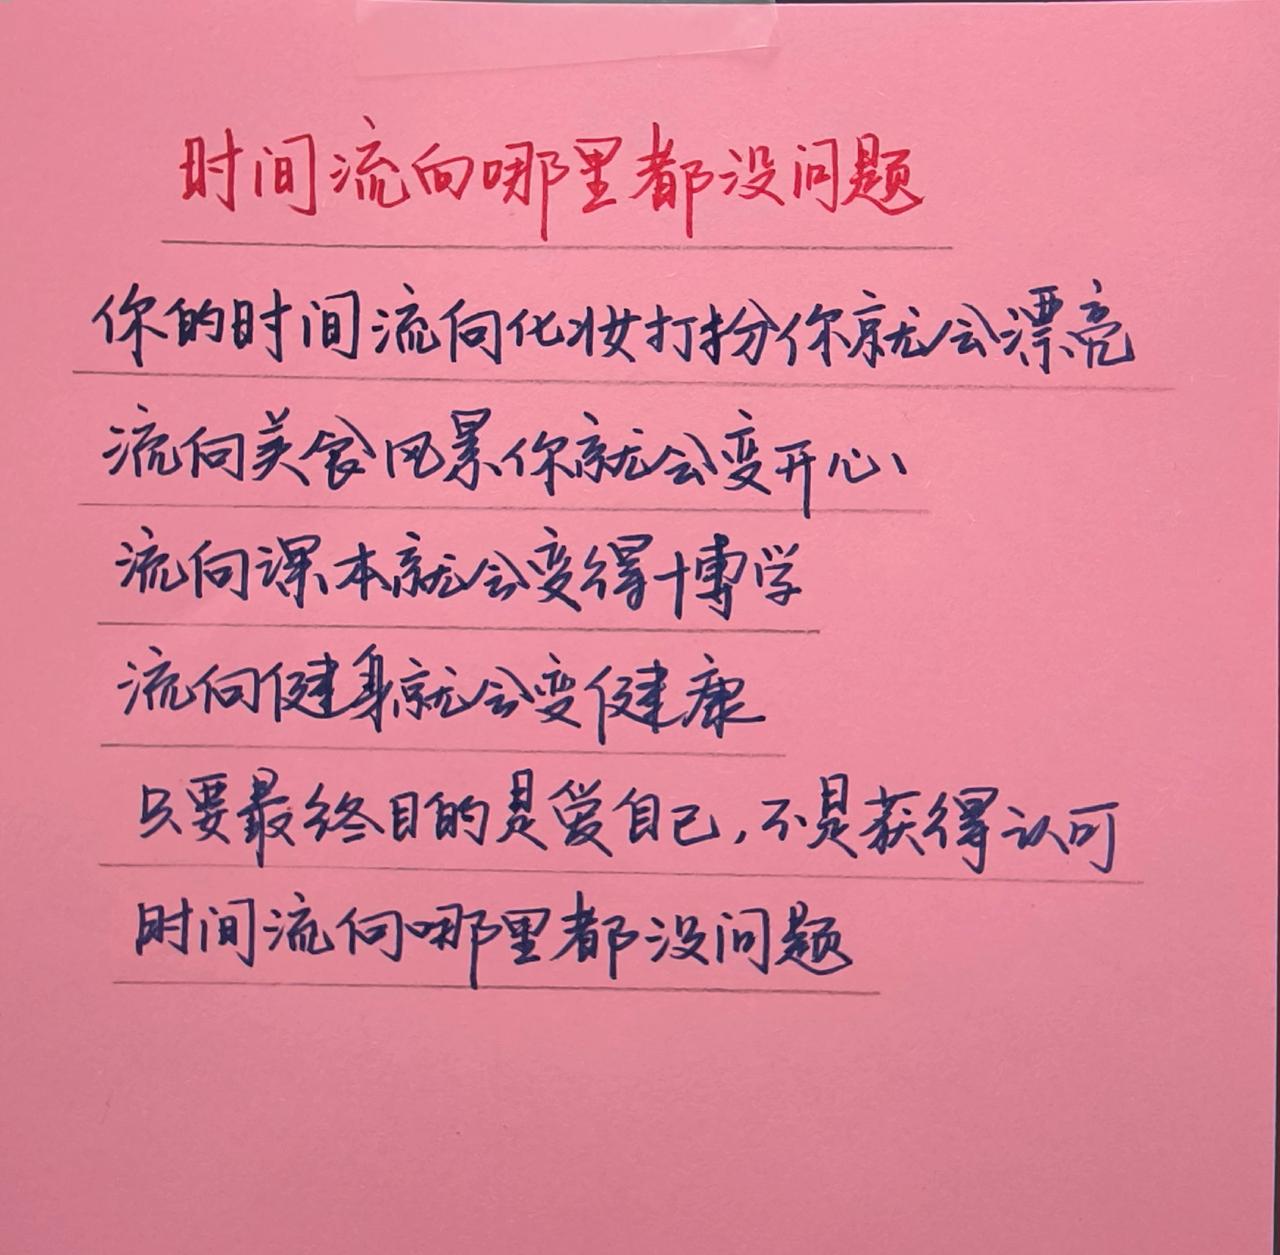 时间流向哪里都没问题
你的时间流向化妆打扮你就会漂亮
流向美食风景你就会变开心
流向课本就会变得博学
流向健身就会变健康
只要最终目的是爱自己,不是获得认可
时间流向哪里都没问题